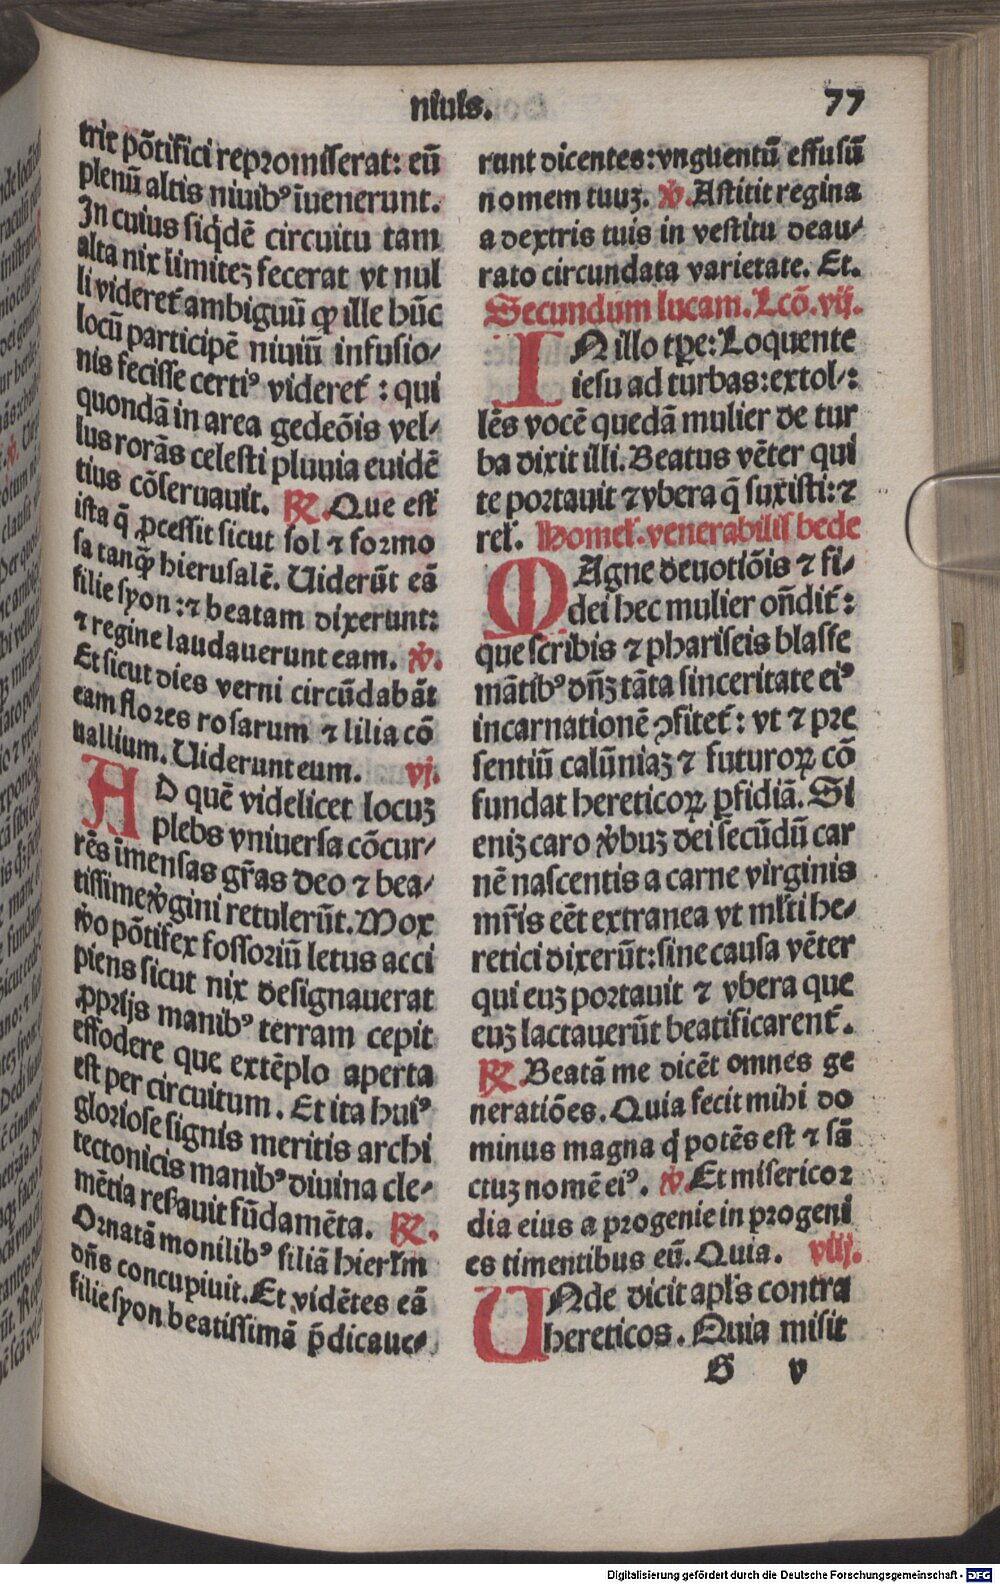 niuis.
77
trix põtifici repromiserat: eũ
plenũ altis niuibꝰ ĩuenerunt.
In cuius siq̇dẽ circuitu tam
alta nix limiteꝫ fecerat vt nul
li videret᷑ ambiguũ ꝙ ille hũc
locũ participẽ niuiũ infusio⸗
nis fecisse certiꝰ videret᷑ : qui
quondã in area gedeõis vel⸗
lus rorãs celesti pluuia euidẽ
tius cõseruauit. ℞. Que est
ista q̃ ꝓcessit sicut sol ⁊ formo
sa tanꝙ̃ hierusalẽ. Uiderũt eã
filie syon : ⁊ beatam dixerunt:
⁊ regine laudauerunt eam. ℣.
Et sicut dies verni circũdabãt
eam flores rosarum ⁊ lilia cõ
uallium. Uiderunt eum. vj.
AD quẽ videlicet locuꝫ
plebs vniuersa cõcur⸗
rẽs ĩmensas gr̃as deo ⁊ bea⸗
tissime v̓gini retulerũt. Mox
v̓o põtifex fossoriũ letus acci
piens sicut nix designauerat
ꝓprijs manibꝰ terram cepit
effodere que extẽplo aperta
est per circuitum. Et ita huiꝰ
gloriose signis meritis archi
tectonicis manibꝰ diuina cle⸗
mẽtia reẜauit fũdamẽta. ℞.
Ornatã monilibꝰ filiã hierłm
dñs concupiuit. Et vidẽtes eã
filie syon beatissimã p̃dicaue⸗
runt dicentes: vnguentũ effusũ
nomem tuuꝫ. ℣. Astitit regina
a dextris tuis in vestitu deau⸗
rato circundata varietate. Et.
Secundum lucam. Lcõ. vij.
IN illo tꝑe: Loquente
iesu ad turbas: extol⸗:
lẽs vocẽ quedã mulier de tur
ba dixit illi. Beatus vẽter qui
te portauit ⁊ vbera q̃ suxisti: ⁊
rel᷑. Homel᷑. venerabilis bede
MAgne deuotiõis ⁊ fi⸗
dei hec mulier oñdit᷑ :
que scribis ⁊ phariseis blasfe
mãtibꝰ dñꝫ tãta sinceritate eiꝰ
incarnationẽ ꝯfitet᷑ : vt ⁊ pre
sentiũ calũniaꝫ ⁊ futuroꝝ cõ
fundat hereticoꝝ ꝑfidiã. Si
eniꝫ caro v̓buꝫ dei secũdũ car
nẽ nascentis a carne virginis
mr̃is eẽt extranea vt ml̓ti he⸗
retici dixerũt: sine causa vẽter
qui euꝫ portauit ⁊ vbera que
euꝫ lactauerũt beatificarent᷑.
℞. Beatã me dicẽt omnes ge
neratiões. Quia fecit mihi do
minus magna q̇ potẽs est ⁊ sã
ctuꝫ nomẽ eiꝰ. ℣. Et misericor
dia eius a progenie in progeni
es timentibus eũ. Quia. viij.
UNde dicit apl̓s contra
hereticos. Quia misit
G v
Digitalisierung gefördert durch die Deutsche Forschungsgemeinschaft - DFG